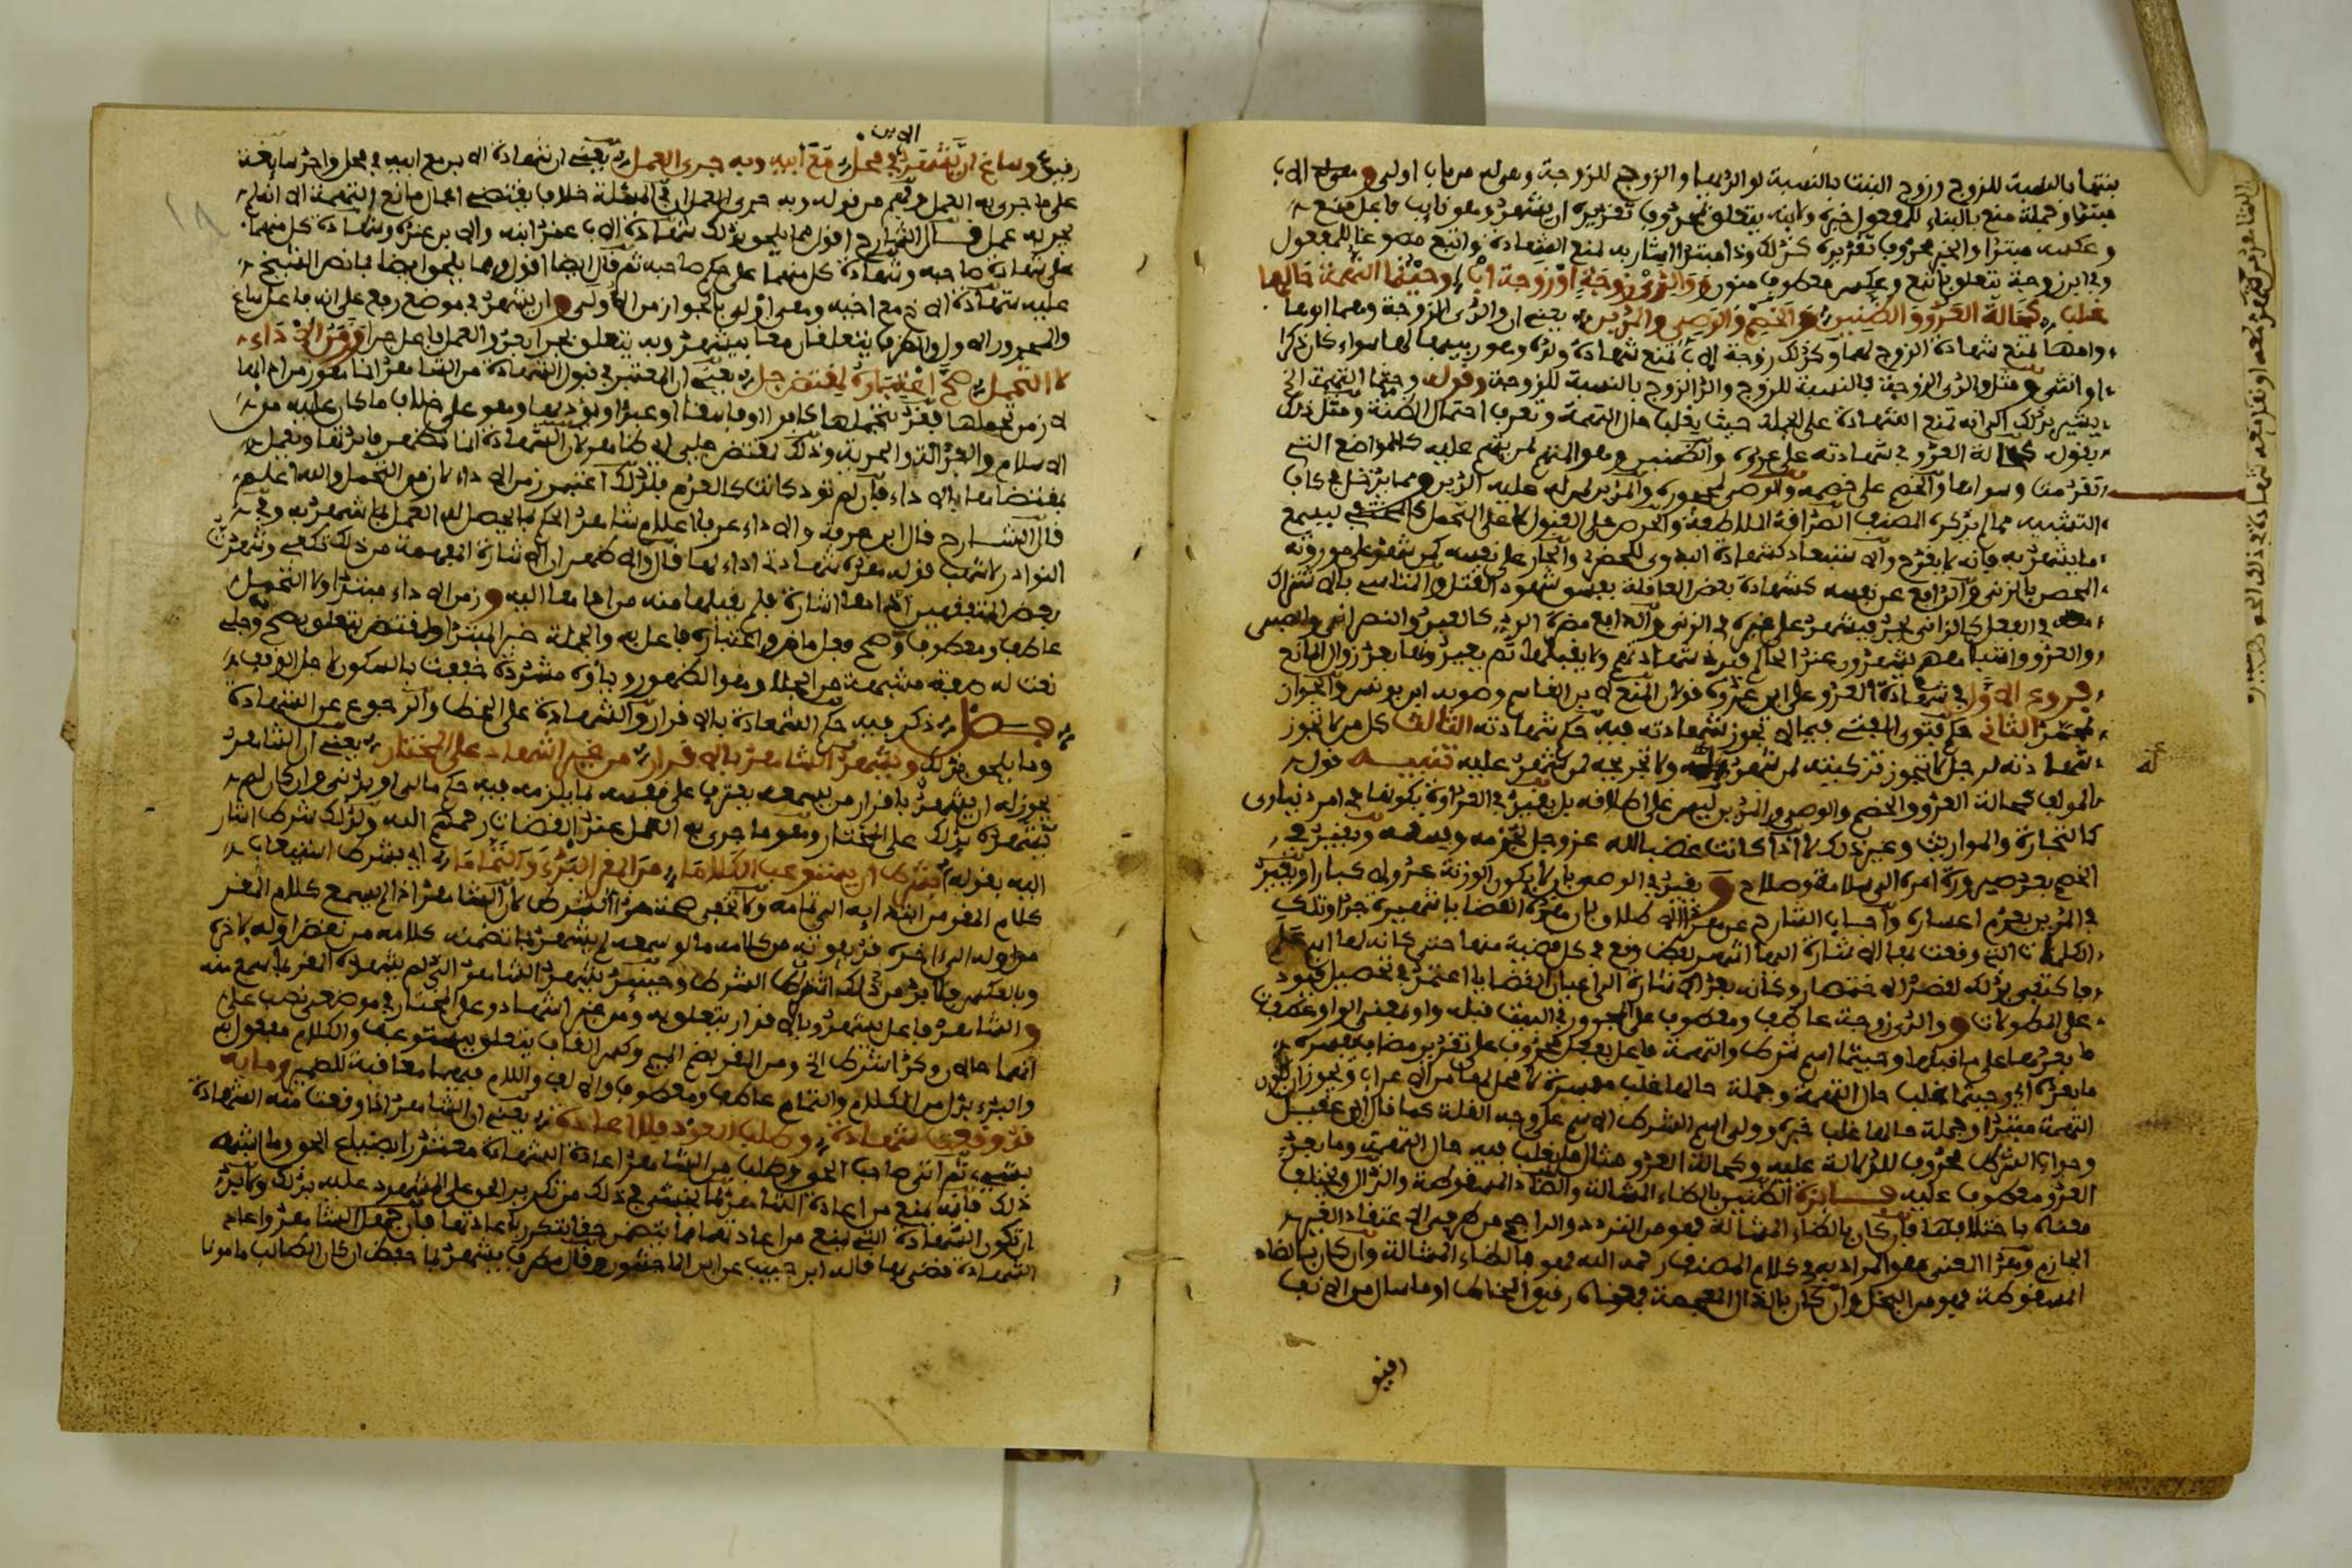 بنتها بالنسبة للزوج وزوج البنت بالنسبة لوالديها والزوج للزوجة وهو له من باب اولى و الاب
مبتدا وجملة منع بالبناء للمفعول خبره ولابنه يتعلق بمحذوف تقديره ان يشهد وهو نايب فاعل منع
وعكسه مبتدا والخبر محذوف تقديره كذلك وذا مبتدا اشار به لمنع الشهادة واتبع للمفعول
وفي ابن زوجة يتعلق باتبع وعكس معطوف ووالدي زوجة او زوجة اب وحيثما التهمة حالها
غلب كحالة العدو والظنين والخصم والوصي والمدين يعني ان والدي الزوجة وهما ابوها
وامها تمنع شهادة الزوج لهما وكذلك زوجة الاب تمنع شهادة ولده وهو ربيبها لها سواء كان ذكرا
او انثى ومثل والدي الزوجة بالنسبة للزوج والد الزوج بالنسبة للزوجة وقوله وحيثما التهمة الخ
يشير بذلك الى انه تمنع الشهادة على الجملة حيث يغلب حال التهمة وتعرف احتمال الظنة ومثل ذلك
بقوله كحالة العدو في شهادته على عدوه والظنين وهو المتهم لمن يتهم عليه كالمواضع التي
تقدمت وسواها والخصم على خصمه والوصي لمحجوره والمدين لمن له عليه الدين ومما يدخل في كاف
التشبيه مما لم يذكره المصنف الصداقة الملاطفة والحرص على القبول لا على التحمل كالمختفي ليسمع
ما يشهد به فانه لا يقدح والاستبعاد كشهادة البدوي للحضري والجار على نفسه كمن شهد على موروثه
المحصن بالزنى والدافع عن نفسه كشهادة بعض العاقلة بفسق شهود القتل والتاسي بالاشتراك
في الفعل كالزاني يحد فيشهد على غيره في الزنى والدافع معرة الرد كالعبد والنصراني والصبي
والعدو واشباههم يشهدون عند الحاكم فترد شهادتهم ولا يقبلها ثم يعيدونها بعد زوال المانع
فروع الاول في شهادة العدو على ابن عدوه قولان المنع لابن القاسم وصوبه ابن يونس والجواز
لمحمد الثاني حكم فتوى المفتي فيما لا تجوز شهادته فيه حكم شهادته الثالث كل من لا تجوز
شهادته لرجل لا تجوز تزكيته لمن شهد له ولا تجريحه لمن شهد عليه تنبيه قول
المولف كحالة العدو والخصم والوصي والمدين ليس على اطلاقه بل يقيد في العداوة بكونها في امر دنياوي
كالتجارة والمواريث وغير ذلك لا اذا كانت غضبا لله عز وجل لجرمه وبفسقه ويقيد في
الخصم بعد صيرورة امره الى سلامة وصلاح ويقيد في الوصي بان لا يكون الورثة عدولا كبارا ويقيد
في المدين بعدم اعساره واجاب الشارح عن هذا الاطلاق بان هذه القضايا شهيرة جدا وتلك
الكلمات التي وقعت بها الاشارة اليها اشهر لفظ وقع في كل قضية منها حتى كانه لها اسم علم
فاكتفى بذلك لقصد الاختصار وكانه بعد الاشارة الى اعيان القضايا اعتمد في تحصيل قيود
على المطولات ووالدي زوجة عاطف ومعطوف على المجرور في البيت قبله واو بمعنى الواو عطفت
ما بعدها على ما قبلها وحيثما اسم شرط والتهمة فاعل بفعل محذوف على تقدير مضاف يفسره
ما بعده اي وحيثما غلب حال التهمة وجملة حالها غلب مفسرة لا محل لها من الاعراب ويجوز ان تكون
التهمة مبتدا وجملة حالها غلب خبره وولي اسم الشرط الاسم على وجه القلة كما قال ابن عقيل
وجواب الشرط محذوف للدلالة عليه وكحالة العدو مثال لما يغلب فيه حال التهمة وما بعد
العدو معطوف عليه فائدة الظنين بالظاء المشالة والضاد المسقوطة والذال ويختلف
معناه باختلافها فان كان بالظاء المشالة فهو من التردد والراجح من طرفي الاعتقاد الغير
الجازم وهذا المعنى هو المراد به في كلام المصنف رحمه الله فهو بالظاء المشالة وان كان بالضاد
المسقوطة فهو من البخل وان كان بالذال المعجمة فمعناه رفيق المخاط او ما سال من الانف
رفيق وساغ ان يشهد الابن في محل مع ابيه وبه جرى العمل يعني ان شهادة الابن مع ابيه في محل واحد سايغة
على ما جرى به العمل وفهم من قوله وبه جرى العمل ان في المسئلة خلافا يقتضي اعمال مانع التهمة الا انه لم
يجر به عمل قال الشارح اقول مما يلحق بذلك شهادة الاب عند ابنه والابن عنده وشهادة كل منهما
على شهادة صاحبه وشهادة كل منهما على حكم صاحبه ثم قال ايضا اقول ومما يلحق ايضا بما نص الشيخ
عليه شهادة الاخ مع اخيه وهي اولى بالجواز من الاولى وان يشهد في موضع رفع على انه فاعل ساغ
والمجرور الاول والظرف يتعلقان معا بيشهد وبه يتعلق بجرا بعده والعمل فاعل جرا وزمن الاداء
لا التحمل صح اعتباره لمقتض جلي يعني ان المعتبر في قبول الشهادة من الشاهد انما هو زمن ادائها
لا زمن تحملها فقد يتحملها كافرا او فاسقا او عبدا ويؤديها وهو على خلاف ما كان عليه من
الاسلام والعدالة والحرية وذلك لمقتض جلي اي ظاهر لان الشهادة انما تظهر فايدتها ويعمل
بمقتضاها بالاداء فان لم تؤد كانت كالعدم فلذلك اعتبر زمن الاداء لا زمن التحمل والله اعلم
قال الشارح قال ابن عرفة والاداء عرفا اعلام شاهد الحاكم بما يحصل له العلم بما شهد به وفي
النوادر لاشهب قوله هذه شهادتي اداء لها قال والاظهر ان الاشارة المفهمة من ذلك تكفي وشهدت
بعض المتفقهين اداها اشارة فلم يقبلها منه من اداها اليه وزمن الاداء مبتدا ولا التحمل
عاطف ومعطوف وصح فعل ماض واعتباره فاعل به والجملة خبر المبتدا ولمقتض يتعلق بصح وجلي
نعت له صفة مشبهة من الجلاء وهو الظهور وياؤه مشددة خففت بالسكون لاجل الوقف
فصل ذكر فيه حكم الشهادة بالاقرار والشهادة على الخط والرجوع عن الشهادة
وما يلحق بذلك ويشهد الشاهد بالاقرار من غير اشهاد على المختار يعني ان الشاهد
يجوز له ان يشهد باقرار من يسمعه يعترف على نفسه بما يلزمه فيه حكم مالي او بدني وان كان لم
يشهده بذلك على المختار وهو ما جرى به العمل عند القضاة رحمهم الله ولذلك شرط اشار
اليه بقوله بشرط ان يستوعب الكلاما من المقر البدء والتماما اي بشرط استيعاب
كلام المقر من ابتدايه الى تمامه ولا تخفى حكمة هذا الشرط لان الشاهد اذا لم يسمع كلام المقر
من اوله الى اخره قد يفوته من كلامه ما لو سمعه لم يشهد بما تضمنه كلامه من نقض اوله لاخره
وبالعكس فلا بد من ذلك الشرط وحينئذ يشهد الشاهد الذي لم يشهده المقر بما سمع منه
والشاهد فاعل يشهد وبالاقرار يتعلق به ومن غير اشهاد وعلى المختار في موضع نصب على
انهما حالان وكذا بشرط الخ ومن المقر بضم الميم وكسر القاف يتعلق بيستوعب والكلام مفعول به
والبدء بدل من الكلام والتمام عاطف ومعطوف والالف واللام فيهما معاقبة للضمير وما به
قد وقعت شهادة وطلب العود فلا اعادة يعني ان الشاهد اذا وقعت منه الشهادة
بشيء ثم اتى صاحب الحق وطلب من الشاهد اعادة الشهادة معتذرا بضياع الحق وما اشبه
ذلك فانه يمنع من اعادة الشاهد لما يخشى في ذلك من تكرير الحق على المشهود عليه بذلك ولا بد
ان تكون الشهادة التي يمنع من اعادتها مما يتضمن حقا يتكرر باعادتها فان جهل الشاهد واعاد
الشهادة قضي بها قاله ابن حبيب عن ابن الماجشون وقال مطرف يشهد بما حفظ ان كان الطالب مامونا